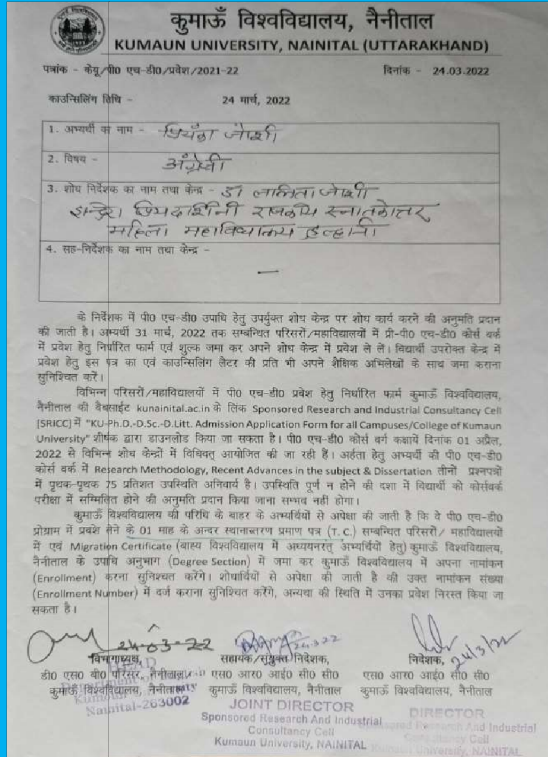 कुमाऊँ विश्वविद्यालय, नैनीताल
KUMAUN UNIVERSITY, NAINITAL (UTTARAKHAND)
पत्रांक - केयू/पी0 एच-डी0/प्रवेश/2021-22 दिनांक - 24.03.2022
काउन्सिलिंग तिथि - 24 मार्च, 2022
1. अभ्यर्थी का नाम - प्रियंका जोशी
2. विषय - अंग्रेजी
3. शोध निर्देशक का नाम तथा केन्द्र - डा0 ललिता जोशी
इन्दिरा प्रियदर्शिनी राजकीय स्नातकोत्तर
महिला महाविद्यालय हल्द्वानी
4. सह-निर्देशक का नाम तथा केन्द्र -
—
के निर्देशक में पी0 एच-डी0 उपाधि हेतु उपर्युक्त शोध केन्द्र पर शोध कार्य करने की अनुमति प्रदान
की जाती है। अभ्यर्थी 31 मार्च, 2022 तक सम्बन्धित परिसरों/महाविद्यालयों में प्री-पी0 एच-डी0 कोर्स वर्क
में प्रवेश हेतु निर्धारित फार्म एवं शुल्क जमा कर अपने शोध केन्द्र में प्रवेश ले लें। विद्यार्थी उपरोक्त केन्द्र में
प्रवेश हेतु इस पत्र का एवं काउन्सिलिंग लैटर की प्रति भी अपने शैक्षिक अभिलेखों के साथ जमा कराना
सुनिश्चित करें।
विभिन्न परिसरों/महाविद्यालयों में पी0 एच-डी0 प्रवेश हेतु निर्धारित फार्म कुमाऊँ विश्वविद्यालय,
नैनीताल की वैबसाईट kunainital.ac.in के लिंक Sponsored Research and Industrial Consultancy Cell
[SRICC] में "KU-Ph.D.-D.Sc.-D.Litt. Admission Application Form for all Campuses/College of Kumaun
University" शीर्षक द्वारा डाउनलोड किया जा सकता है। पी0 एच-डी0 कोर्स वर्ग कक्षायें दिनांक 01 अप्रैल,
2022 से विभिन्न शोध केन्द्रों में विधिवत् आयोजित की जा रही हैं। अर्हता हेतु अभ्यर्थी की पी0 एच-डी0
कोर्स वर्क में Research Methodology, Recent Advances in the subject & Dissertation तीनों प्रश्नपत्रों
में पृथक-पृथक 75 प्रतिशत उपस्थिति अनिवार्य है। उपस्थिति पूर्ण न होने की दशा में विद्यार्थी को कोर्सवर्क
परीक्षा में सम्मिलित होने की अनुमति प्रदान किया जाना सम्भव नहीं होगा।
कुमाऊँ विश्वविद्यालय की परिधि के बाहर के अभ्यर्थियों से अपेक्षा की जाती है कि वे पी0 एच-डी0
प्रोग्राम में प्रवेश लेने के 01 माह के अन्दर स्थानान्तरण प्रमाण पत्र (T. C.) सम्बन्धित परिसरों/ महाविद्यालयों
में एवं Migration Certificate (बाह्य विश्वविद्यालय में अध्ययनरत् अभ्यर्थियों हेतु) कुमाऊँ विश्वविद्यालय,
नैनीताल के उपाधि अनुभाग (Degree Section) में जमा कर कुमाऊँ विश्वविद्यालय में अपना नामांकन
(Enrollment) करना सुनिश्चत करेंगे। शोधार्थियों से अपेक्षा की जाती है की उक्त नामांकन संख्या
(Enrollment Number) में दर्ज कराना सुनिश्चित करेंगे, अन्यथा की स्थिति में उनका प्रवेश निरस्त किया जा
सकता है।
24-03-22 24/3/22
विभागाध्यक्ष, सहायक/संयुक्त निदेशक, निदेशक,
डी0 एस0 बी0 परिसर, नैनीताल एस0 आर0 आई0 सी0 सी0 एस0 आर0 आई0 सी0 सी0
कुमाऊँ विश्वविद्यालय, नैनीताल कुमाऊँ विश्वविद्यालय, नैनीताल कुमाऊँ विश्वविद्यालय, नैनीताल
HEAD
Nainital-263002
JOINT DIRECTOR
Sponsored Research And Industrial
Consultancy Cell
Kumaun University, NAINITAL
DIRECTOR
Sponsored Research And Industrial
Consultancy Cell
Kumaun University, NAINITAL